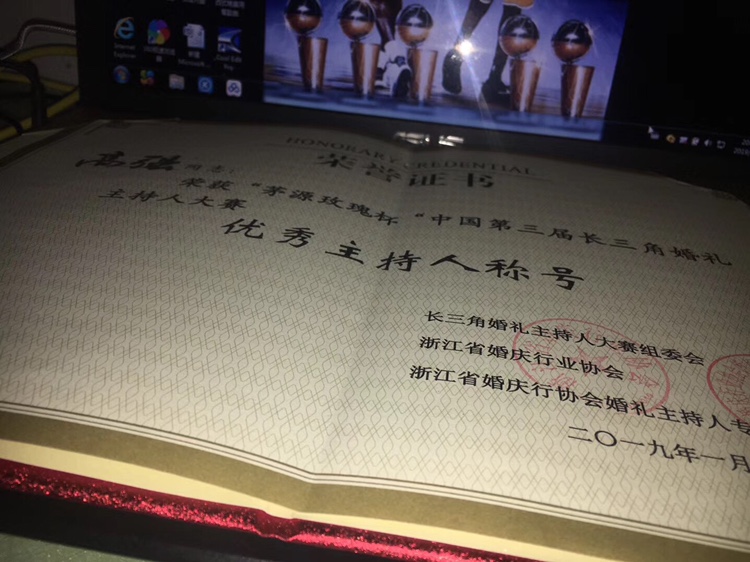 Internet
Explorer
Microsoft...
HONORARY CREDENTIAL
荣誉证书
高强同志:
荣获“茅源玫瑰杯“中国第三届长三角婚礼
主持人大赛
优秀主持人称号
长三角婚礼主持人大赛组委会
浙江省婚庆行业协会
浙江省婚庆行协会婚礼主持人专
二〇一九年一月